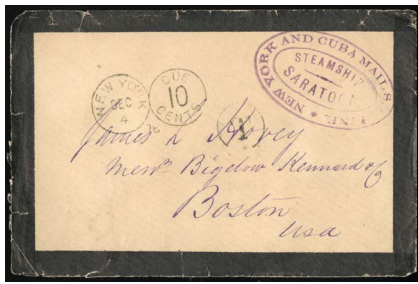 NEW YORK AND CUBA MAIL S.S. LINE
STEAMSHIP
SARATOGA
NEW YORK
DEC
4
DUE
10
CENTS
James L
Messrs Bigelow Kennard &
Boston
USA